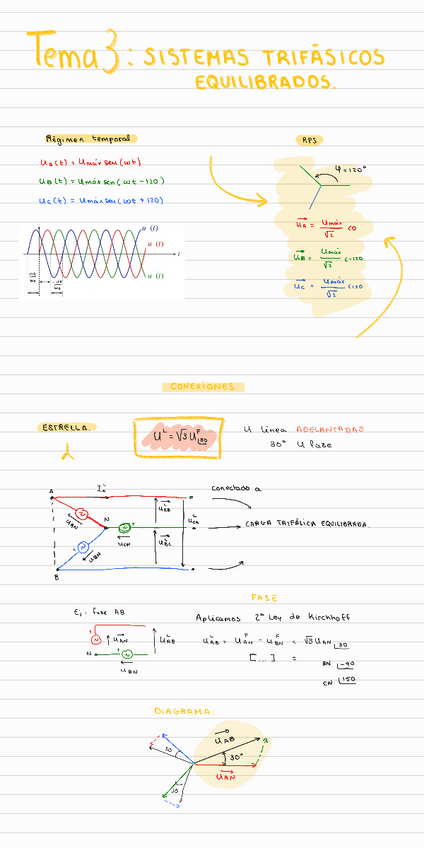 Tema 3: SISTEMAS TRIFÁSICOS
EQUILIBRADOS.
Régimen temporal
RPS
UA(t) = Umáx sen(ωt)
UB(t) = Umáx sen(ωt -120)
UC(t) = Umáx sen(ωt +120)
φ=120°
UA = Umáx/√2 <0
UB = Umáx/√2 <-120
UC = Umáx/√2 <120
u (t)
u (t)
u (t)
t
CONEXIONES
ESTRELLA.
U^L = √3 U^F
U línea ADELANTADAS
30° U fase
A
N
B
UAN
UBN
UCN
UAB
UBC
UCA
conectado a
CARGA TRIFÁSICA EQUILIBRADA.
FASE
Ej: fase AB
Aplicamos 2ª Ley de Kirchhoff
UAB = UAN - UBN = √3 UAN |30
[...] =
BN |-90
CN |150
UAN
UAB
N
UBN
DIAGRAMA:
UAB
30°
UAN
30
30